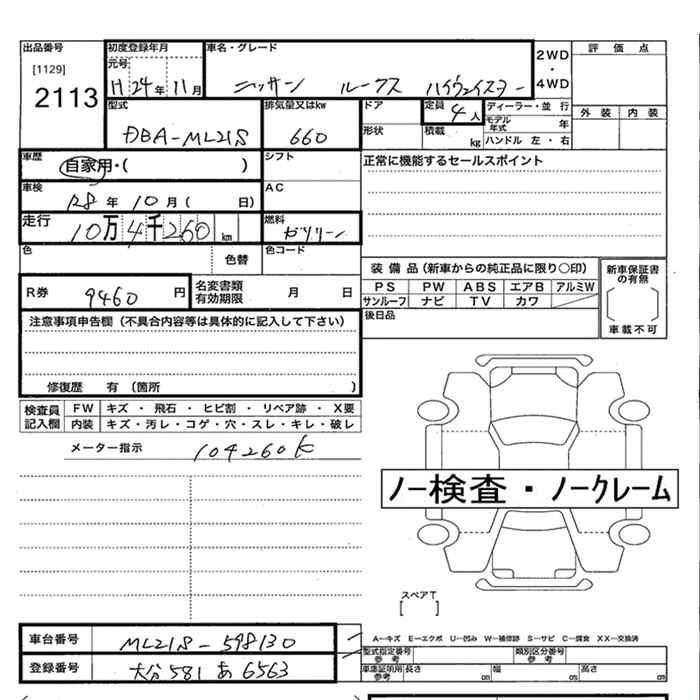 出品番号 初度登録年月 車名・グレード 2WD ・ 4WD 評価点
[1129] 元号
2113 H 24年 11月 ニッサン ルークス ハイウェイスター
型式 排気量又はkw ドア 定員 4人 ディーラー・並行 外装 内装
DBA-ML21S 660 形状 積載 kg モデル年式 年
ハンドル 左・右
車歴 自家用・( ) シフト 正常に機能するセールスポイント
車検 R8年 10月( 日) AC
走行 10万4千260km 燃料 ガソリン
色 色替 色コード
装備品(新車からの純正品に限り○印) 新車保証書の有無
R券 9460円 名変書類有効期限 月 日 PS PW ABS エアB アルミW
サンルーフ ナビ TV カワ
後日品 車載不可
注意事項申告欄(不具合内容等は具体的に記入して下さい)
修復歴 有(箇所 )
検査員記入欄 FW キズ・飛石・ヒビ割・リペア跡・X要
内装 キズ・汚レ・コゲ・穴・スレ・キレ・破レ
メーター指示 104260K
ノー検査・ノークレーム
スペアT
[ ]
車台番号 ML21S-598130
A-キズ E-エクボ U-凹み W-補修跡 S-サビ C-腐食 XX-交換済
型式指定番号参考 類別区分番号参考
登録番号 大分 581 あ 6563
車庫証明用参考 長さ cm 幅 cm 高さ cm